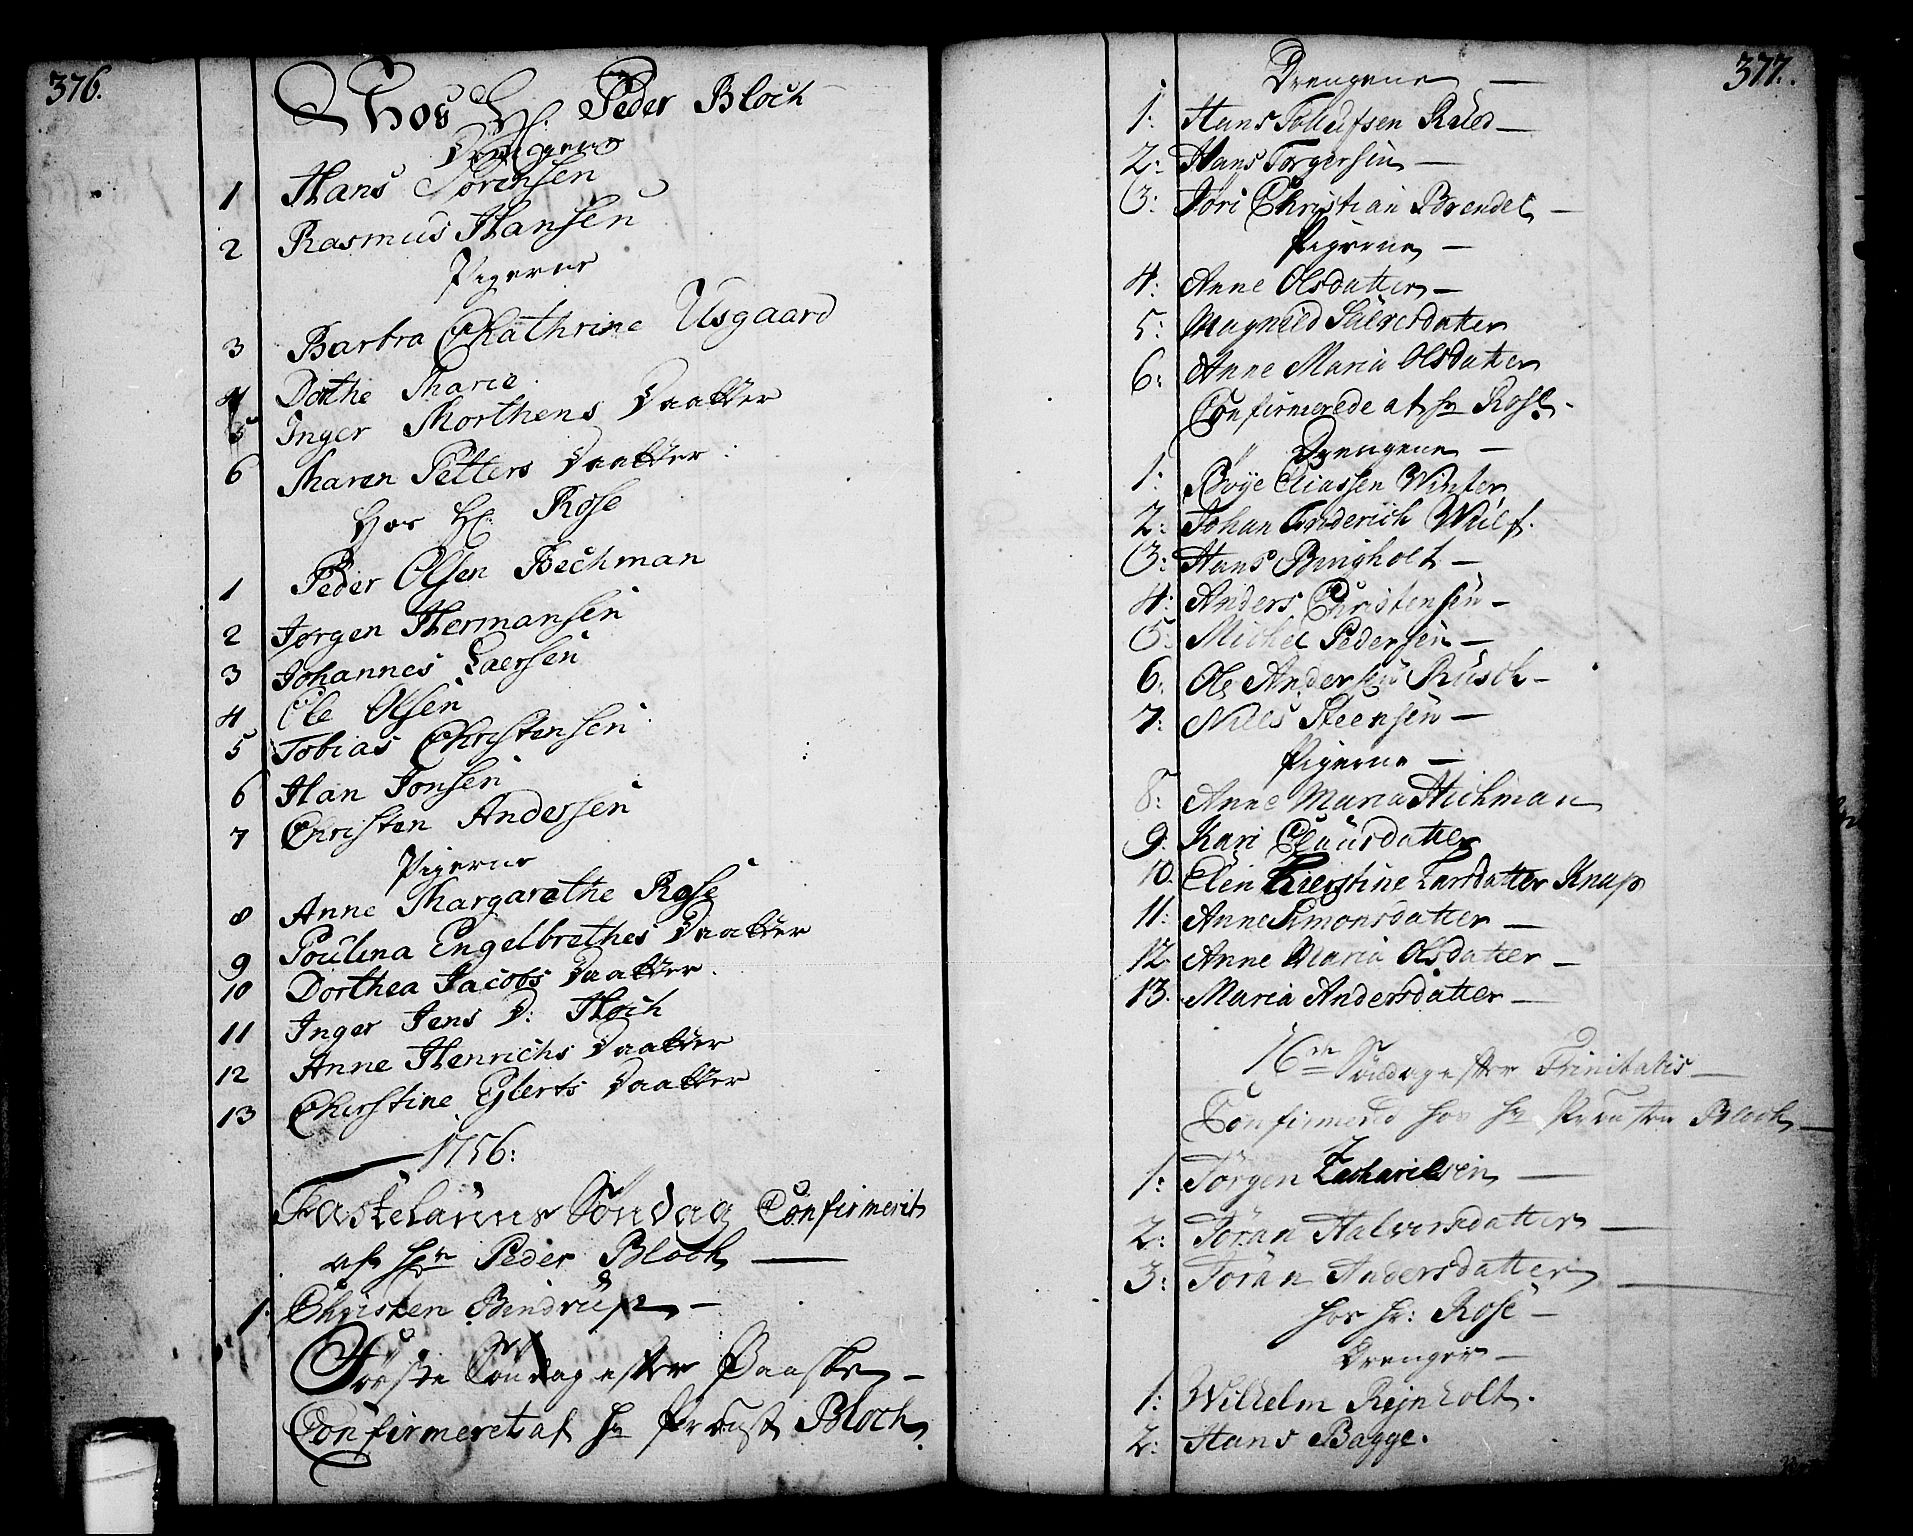 376.
Hos Hr. Peder Bloch
Drengene
1 Hans Sörensen
2 Rasmus Hansen
Pigerne
3 Barbra Chathrine Usgaard
4 Dorthe Marie
5 Inger Morthens Daatter
6 Maren Petters Daatter
Hos Hr. Rose
1 Peder Olsen Bechman
2 Jørgen Hermansen
3 Johannes Laersen
4 Ole Olsen
5 Tobias Christensen
6 Han Jonsen
7 Christen Andersen
Pigerne
8 Anne Margarethe Rose
9 Poulina Engelbrethes Daatter
10 Dorthea Jacobs Daatter
11 Inger Jens D: Hoch
12 Anne Henrichs Daatter
13 Cherstine Eylerts Daatter
1756:
Fastelauns Søndag Confirmerit
af Hr Peder Bloch
1: Christen Bendrup
Første Søndag efter Paaske
Confirmeret af Hr Provst Bloch
377.
Drengene
1: Hans Tollufsen Ruud
2: Hans Torgersen
3: Jöri Christian Brendel
Pigerne
4: Anne Olsdatter
5: Magnild Salvesdatter
6: Anne Maria Olsdatter
Confirmerede af Hr Rose
Drengene
1: Bøye Eliassen Winter
2: Johan Friderich Wulf.
3: Hans Bingholt
4: Anders Christensen
5: Michel Pedersen
6: Ole Andersen Rusch
7: Niels Steensen
Pigerne
8: Anne Maria Hichman
9: Kari Claüsdatter
10. Elen Kierstine Larsdatter Knap
11: Anne Simonsdatter
12. Anne Maria Olsdatter
13. Maria Andersdatter
16de Søndag efter Trinitatis
Confirmerid hos Hr Provsten Bloch
1: Jörgen Zachariesen
2: Jöran Halversdatter
3: Jöran Andersdatter
hos Hr: Rose
Drenger
1: Wilhelm Rejnholt.
2: Hans Bagge.